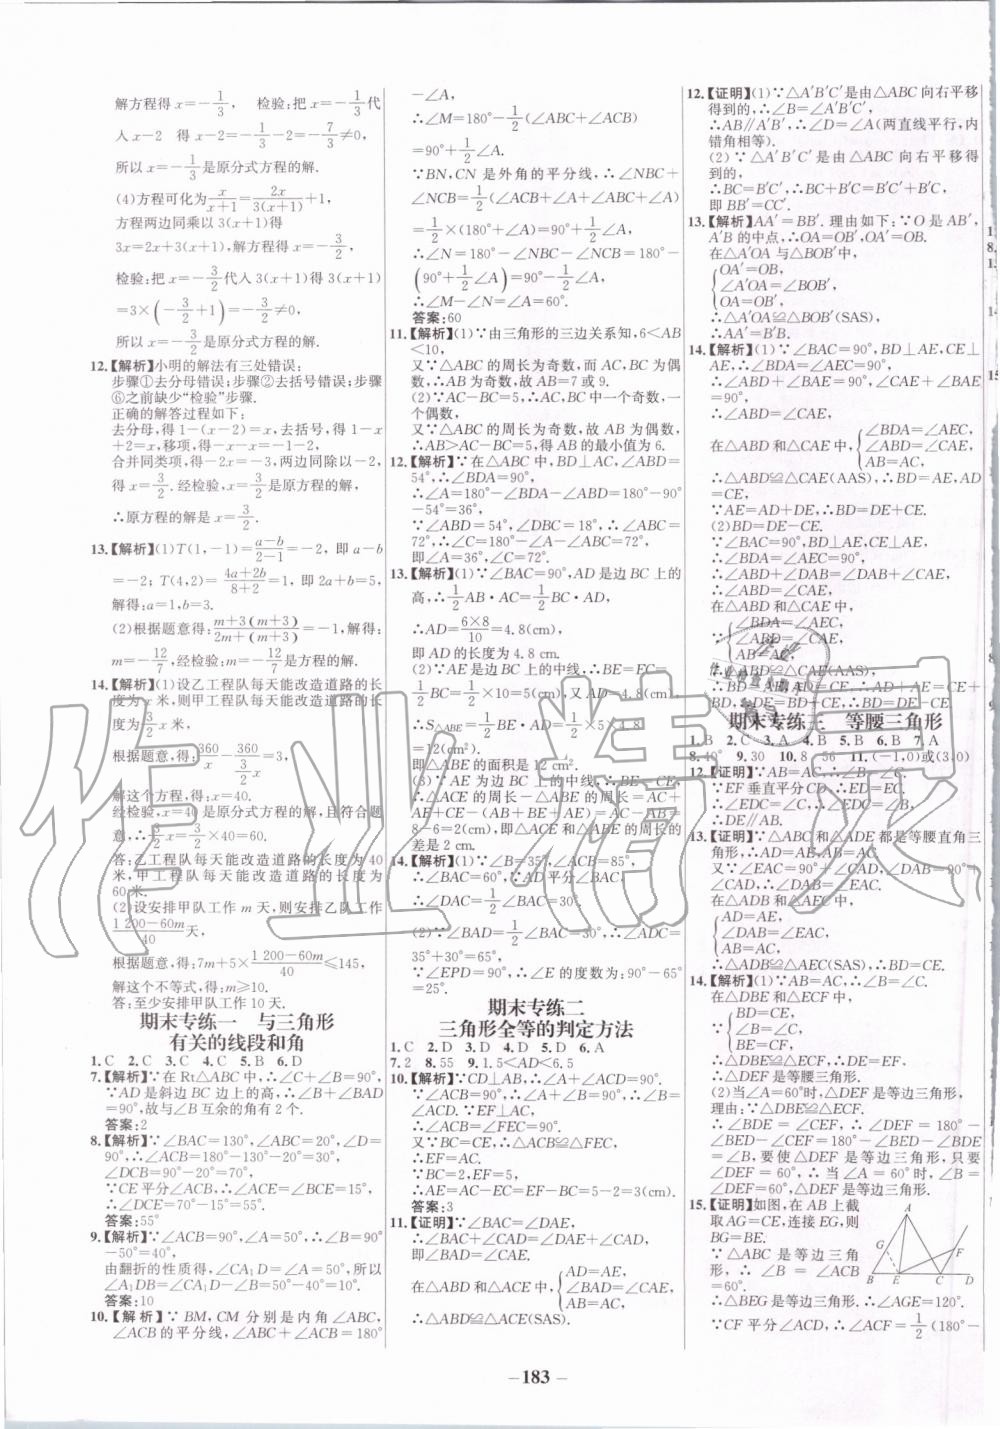 解方程得 x=-1/3, 检验:把 x=-1/3代
入 x-2 得 x=-1/3-2=-7/3≠0,
所以 x=-1/3是原分式方程的解.
(4)方程可化为x/(x+1)=2x/(3(x+1))+1,
方程两边同乘以 3(x+1)得
3x=2x+3(x+1),解得 x=-3/2
检验:把 x=-3/2代入 3(x+1)得 3(x+1)
=3×(-3/2+1)=-3/2≠0,
所以 x=-3/2是原分式方程的解.
12.【解析】小明的解法有三处错误:
步骤①去分母错误;步骤②去括号错误;步骤
⑥之前缺少“检验”步骤.
正确的解答过程如下:
去分母,得 1-(x-2)=x,去括号,得 1-x
+2=x,移项,得-x-x=-1-2,
合并同类项,得-2x=-3,两边同除以-2,
得 x=3/2.经检验,x=3/2是原方程的解,
∴原方程的解是 x=3/2.
13.【解析】(1)T(1,-1)=(a-b)/(2-1)=-2, 即 a-b
=-2; T(4,2)=(4a+2b)/(8+2)=1,即 2a+b=5,
解得:a=1,b=3.
(2)根据题意得:(m+3(m+3))/(2m+(m+3))=-1,解得:
m=-12/7,经检验:m=-12/7是方程的解.
14.【解析】(1)设乙工程队每天能改造道路的长
度为 x 米,则甲工程队每天能改造道路的长
度为3/2 x 米,
根据题意,得:360/x-360/(3/2 x)=3,
解这个方程,得:x=40.
经检验,x=40是原分式方程的解,且符合题
意,∴3/2x=3/2×40=60.
答:乙工程队每天能改造道路的长度为 40
米,甲工程队每天能改造道路的长度为
60 米.
(2)设安排甲队工作 m 天,则安排乙队工作
(1 200-60m)/40天,
根据题意,得:7m+5×(1 200-60m)/40≤145,
解这个不等式,得:m≥10.
答:至少安排甲队工作 10 天.
期末专练一 与三角形
有关的线段和角
1.C 2.C 3.C 4.C 5.B 6.D
7.【解析】∵在 Rt△ABC 中,∴∠C+∠B=90°,
∵AD 是斜边 BC 边上的高,∴∠B+∠BAD
=90°,故与∠B 互余的角有 2 个.
答案:2
8.【解析】∵∠BAC=130°,∠ABC=20°,∠D=
90°,∴∠ACB=180°-130°-20°=30°,
∠DCB=90°-20°=70°,
∵CE 平分∠ACB,∴∠ACE=∠BCE=15°,
∴∠DCE=70°-15°=55°.
答案:55°
9.【解析】∵∠ACB=90°,∠A=50°,∴∠B=90°
-50°=40°,
由翻折的性质得,∠CA₁D=∠A=50°,所以
∠A₁DB=∠CA₁D-∠B=50°-40°=10°.
答案:10
10.【解析】∵ BM,CM 分别是内角∠ABC,
∠ACB 的平分线,∠ABC+∠ACB=180°
-∠A,
∴∠M=180°-1/2(∠ABC+∠ACB)
=90°+1/2∠A.
∵BN,CN 是外角的平分线,∴∠NBC+
∠NCB=1/2(∠ACB+∠A+∠ABC+∠A)
=1/2×(180°+∠A)=90°+1/2∠A,
∴∠N=180°-∠NBC-∠NCB=180°-
(90°+1/2∠A)=90°-1/2∠A,
∴∠M-∠N=∠A=60°.
答案:60
11.【解析】(1)∵由三角形的三边关系知,6<AB
<10,
又∵△ABC 的周长为奇数,而 AC,BC 为偶
数,∴AB 为奇数,故 AB=7 或 9.
(2)∵AC-BC=5,∴AC,BC 中一个奇数,一
个偶数,
又∵△ABC 的周长为奇数,故 AB 为偶数,
∴AB>AC-BC=5,得 AB 的最小值为 6.
12.【解析】∵在△ABC 中,BD⊥AC,∠ABD=
54°,∴∠BDA=90°,
∴∠A=180°-∠BDA-∠ABD=180°-90°
-54°=36°,
∵∠ABD=54°,∠DBC=18°,∴∠ABC=
72°,∴∠C=180°-∠A-∠ABC=72°,
即∠A=36°,∠C=72°.
13.【解析】(1)∵∠BAC=90°,AD 是边 BC 上的
高,∴1/2AB·AC=1/2BC·AD,
∴AD=(6×8)/10=4.8(cm),
即 AD 的长度为 4.8 cm.
(2)∵AE 是边 BC 上的中线,∴BE=EC=
1/2BC=1/2×10=5(cm),又 AD=4.8 cm,
∴S△ABE=1/2BE·AD=1/2×5×4.8
=12(cm²).
即△ABE 的面积是 12 cm².
(3)∵AE 为边 BC 上的中线,∴BE=CE,
∴△ACE 的周长-△ABE 的周长=AC+
AE+CE-(AB+BE+AE)=AC-AB=
8-6=2(cm),即△ACE 和△ABE 的周长的
差是 2 cm.
14.【解析】(1)∵∠B=35°,∠ACB=85°,
∴∠BAC=60°,∵AD 平分∠BAC,
∴∠DAC=1/2∠BAC=30°.
(2)∵∠BAD=1/2∠BAC=30°,∴∠ADC=
35°+30°=65°,
∵∠EPD=90°,∴∠E 的度数为:90°-65°
=25°.
期末专练二
三角形全等的判定方法
1.C 2.D 3.D 4.D 5.D 6.A
7.2 8.55 9.1.5<AD<6.5
10.【解析】∵CD⊥AB,∴∠A+∠ACD=90°.
∵∠ACB=90°,∴∠ACD+∠BCD=90°,
∴∠A=∠BCD.∵EF⊥AC,
∴∠ACB=∠FEC=90°.
又∵BC=EC,∴△ACB≌△FEC,
∴EF=AC.
∵BC=2,EF=5,
∴AE=AC-EC=EF-BC=5-2=3(cm).
答案:3
11.【证明】∵∠BAC=∠DAE,
∴∠BAC+∠CAD=∠DAE+∠CAD,
即∠BAD=∠CAE.
在△ABD 和△ACE 中,{AD=AE, ∠BAD=∠CAE, AB=AC,
∴△ABD≌△ACE(SAS).
12.【证明】(1)∵△A′B′C′是由△ABC 向右平移
得到的,∴∠B=∠A′B′C′,
∴AB∥A′B′,∴∠D=∠A(两直线平行,内
错角相等).
(2)∵△A′B′C′是由△ABC 向右平移得
到的,
∴BC=B′C′,∴BC+B′C=B′C′+B′C,
即 BB′=CC′.
13.【解析】AA′=BB′. 理由如下:∵O 是 AB′,
A′B 的中点,∴OA=OB′,OA′=OB.
在△A′OA 与△BOB′中,
{OA′=OB,
∠A′OA=∠BOB′,
OA=OB′,
∴△A′OA≌△BOB′(SAS),
∴AA′=B′B.
14.【解析】(1)∵∠BAC=90°,BD⊥AE,CE⊥
AE,∴∠BDA=∠AEC=90°,
∴∠ABD+∠BAE=90°,∠CAE+∠BAE
=90°,
∴∠ABD=∠CAE,
在△ABD 和△CAE 中,{∠BDA=∠AEC, ∠ABD=∠CAE, AB=AC,
∴△ABD≌△CAE(AAS),∴BD=AE,AD
=CE,
∵AE=AD+DE,∴BD=DE+CE.
(2)BD=DE-CE.
∵∠BAC=90°,BD⊥AE,CE⊥AE,
∴∠BDA=∠AEC=90°.
∴∠ABD+∠DAB=∠DAB+∠CAE,
∴∠ABD=∠CAE,
在△ABD 和△CAE 中,
{∠BDA=∠AEC,
∠ABD=∠CAE,
AB=AC,
∴△ABD≌△CAE(AAS),
∴BD=AE,AD=CE,∴AD+AE=CE+
BD,∵DE=AD+AE,∴BD=DE-CE.
期末专练三 等腰三角形
1.B 2.C 3.A 4.B 5.B 6.B 7.A
8.40° 9.30 10.8 56 11.(-1,0)或(3,0)
12.【证明】∵AB=AC,∴∠B=∠C.
∵EF 垂直平分 CD,∴ED=EC.
∴∠EDC=∠C,∴∠EDC=∠B,
∴DE∥AB.
13.【证明】∵△ABC 和△ADE 都是等腰直角三
角形,∴AD=AE,AB=AC,
又∵∠EAC=90°+∠CAD,∠DAB=90°+
∠CAD,∴∠DAB=∠EAC,
在△ADB 和△AEC 中,
{AD=AE,
∠DAB=∠EAC,
AB=AC,
∴△ADB≌△AEC(SAS),∴BD=CE.
14.【解析】(1)∵AB=AC,∴∠B=∠C.
在△DBE 和△ECF 中,
∵{BD=CE,
∠B=∠C,
BE=CF,
∴△DBE≌△ECF,∴DE=EF,
∴△DEF 是等腰三角形.
(2)当∠A=60°时,△DEF 是等边三角形,
理由:∵△DBE≌△ECF.
∴∠BDE=∠CEF,∴∠DEF=180°-
∠BED-∠CEF=180°-∠BED-∠BDE
=∠B,要使△DEF 是等边三角形,只要
∠DEF=60°. ∴当∠A=60°时,∠B=
∠DEF=60°,△DEF 是等边三角形.
15.【证明】如图,在 AB 上截
取 AG=CE,连接 EG,则
BG=BE.
∵△ABC 是等边三角
形,∴∠B=∠ACB
=60°.
∴△BEG 是等边三角形.∴∠AGE=120°.
∵CF 平分∠ACD,∴∠ACF=1/2(180°-
A
G
F
B E C D
作业精灵
183